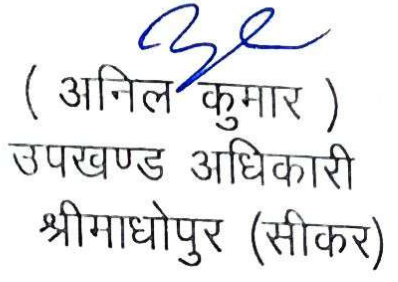 ( अनिल कुमार )
उपखण्ड अधिकारी
श्रीमाधोपुर (सीकर)